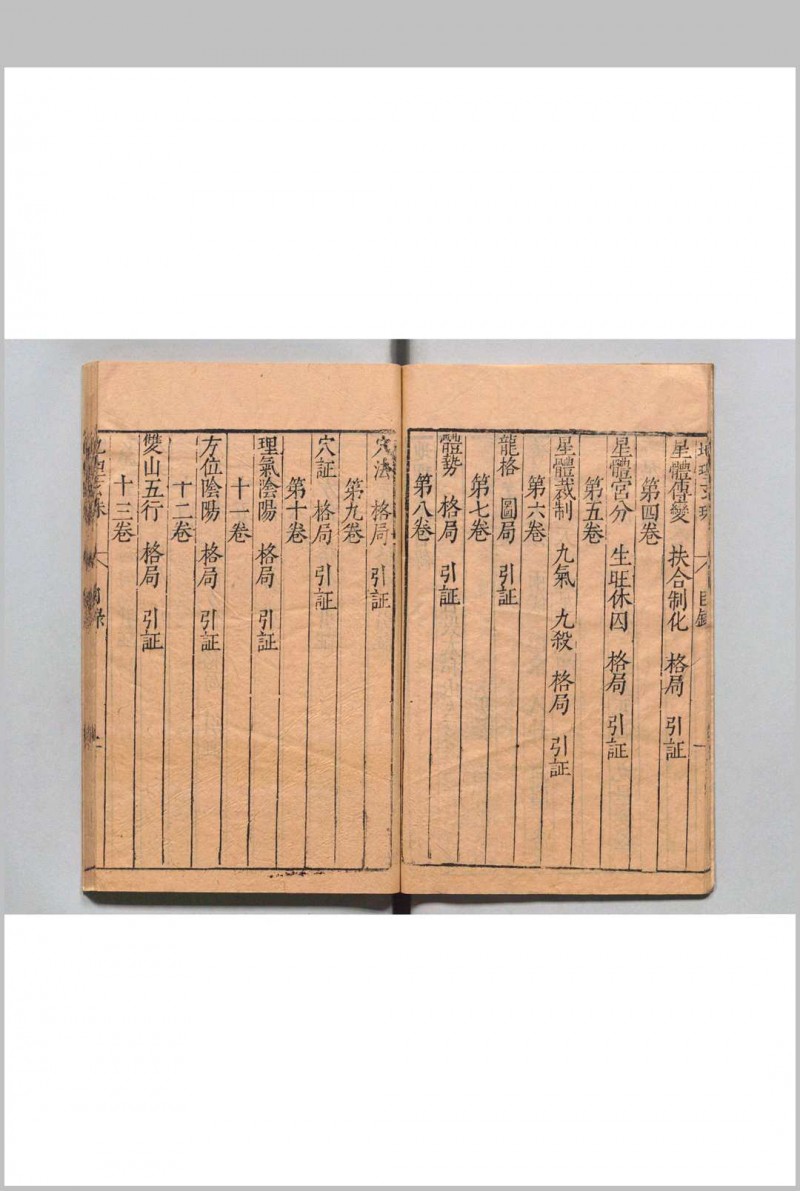 地理玄珠 目錄 一
星體傳變 扶合制化 格局 引証
第四卷
星體宮分 生旺休囚 格局 引証
第五卷
星體裁制 九氣 九殺 格局 引証
第六卷
龍格 圖局 引証
第七卷
體勢 格局 引証
第八卷
穴法 格局 引証
第九卷
穴証 格局 引証
第十卷
理氣陰陽 格局 引証
十一卷
方位陰陽 格局 引証
十二卷
雙山五行 格局 引証
十三卷
地理玄珠 目錄